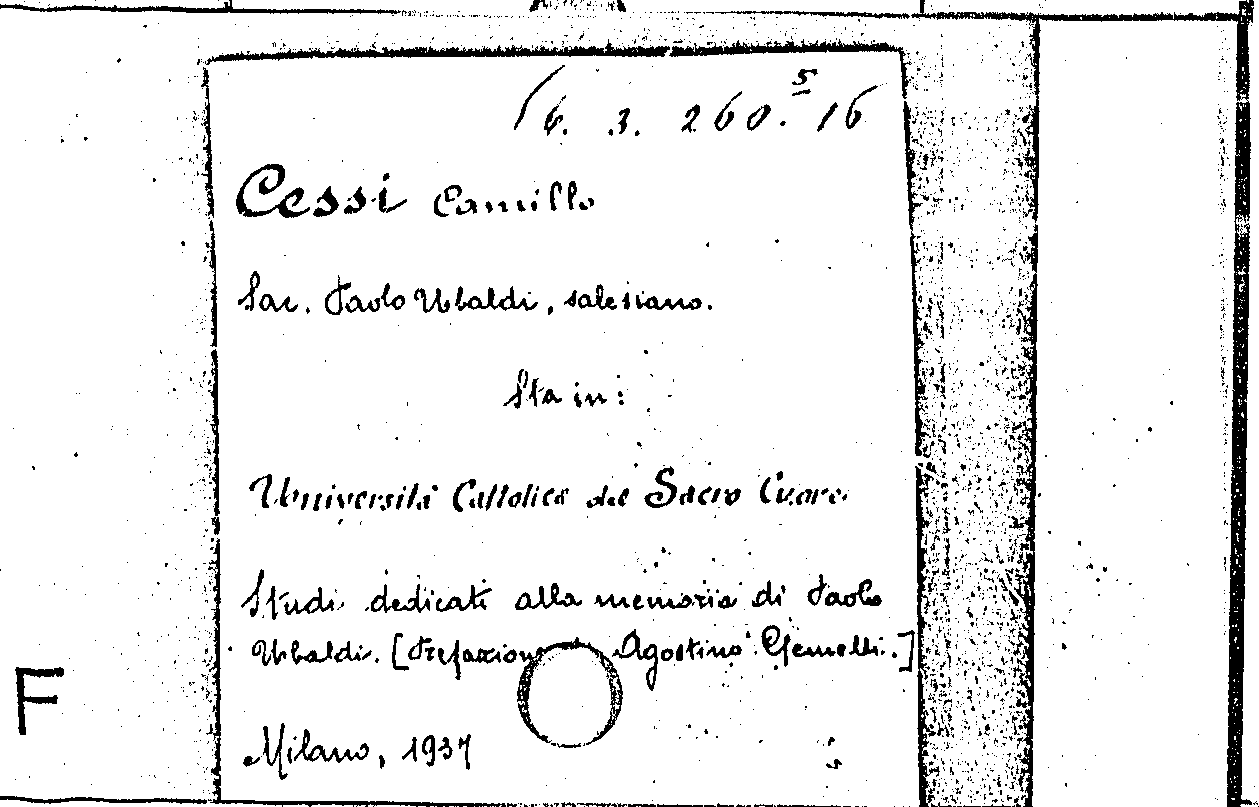 16. 3. 260.5 16
Cessi Camillo
Sac. Paolo Ubaldi, salesiano.
Sta in:
Università Cattolica del Sacro Cuore.
Studi dedicati alla memoria di Paolo
Ubaldi. [Prefazione Agostino Gemelli.]
F
Milano, 1937